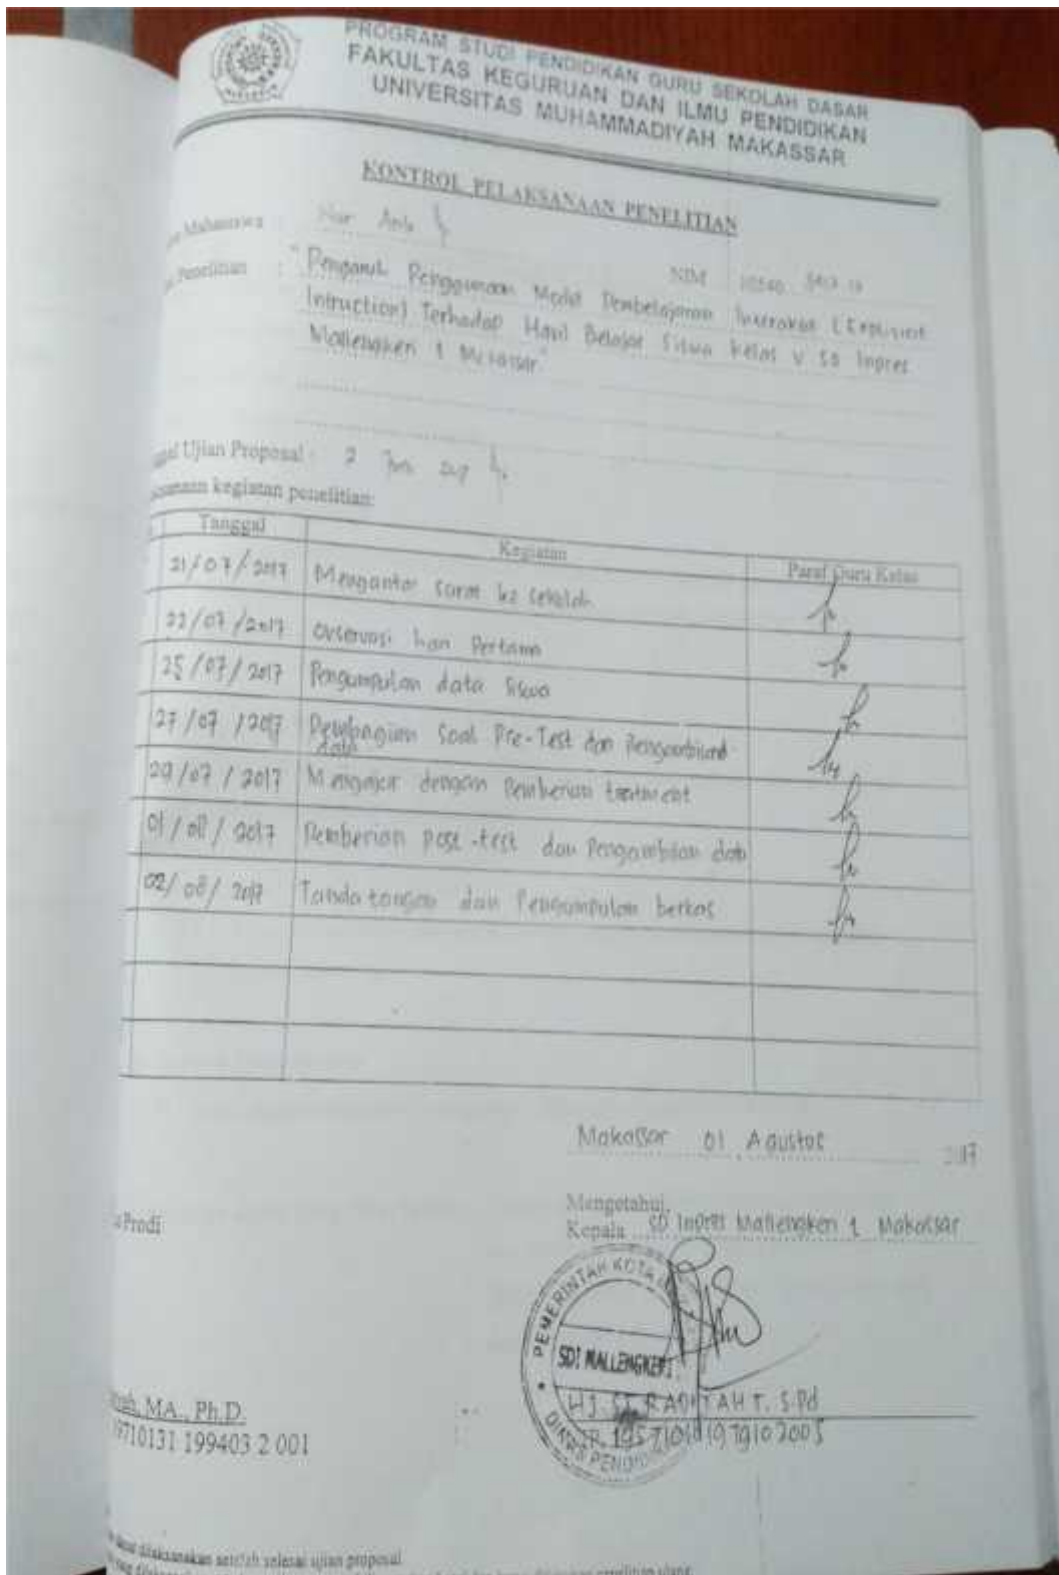 PROGRAM STUDI PENDIDIKAN GURU SEKOLAH DASAR
FAKULTAS KEGURUAN DAN ILMU PENDIDIKAN
UNIVERSITAS MUHAMMADIYAH MAKASSAR
KONTROL PELAKSANAAN PENELITIAN
Mahasiswa : Nur
NIM 10540
Penelitian : "Pengaruh Penggunaan Model Pembelajaran
Intruction) Terhadap Hasil Belajar Siswa Kelas V SD Inpres
Mallengkeri 1 Makassar"
Ujian Proposal : 2
kegiatan penelitian:
Tanggal Kegiatan Paraf Guru Kelas
21/07/2017 Mengantar surat ke sekolah
22/07/2017 Observasi hari Pertama
25/07/2017 Pengumpulan data Siswa
27/07/2017 Pembagian Soal Pre-Test dan Pengambilan
data
29/07/2017 Mengajar dengan Pemberian treatment
01/08/2017 Pemberian post-test dan Pengambilan data
02/08/2017 Tanda tangan dan Pengumpulan berkas
Makassar 01, Agustus 2017
Mengetahui,
Prodi
Kepala SD Inpres Mallengkeri 1 Makassar
PEMERINTAH KOTA
SDI MALLENGKERI
DINAS PENDIDIKAN
MA., Ph.D.
T. S.Pd
19710131 199403 2 001
dilaksanakan setelah selesai ujian proposal